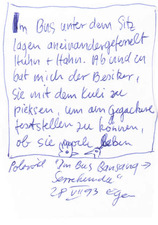 Im Bus unter dem Sitz
lagen aneinandergefesselt
Huhn + Hahn. Ab und zu
bat mich der Besitzer,
sie mit dem Kuli zu
pieksen, um am Gegacker
feststellen zu können,
ob sie noch leben
Polaroid "Im Bus Bansang →
Serrekunda"
28 VII 93